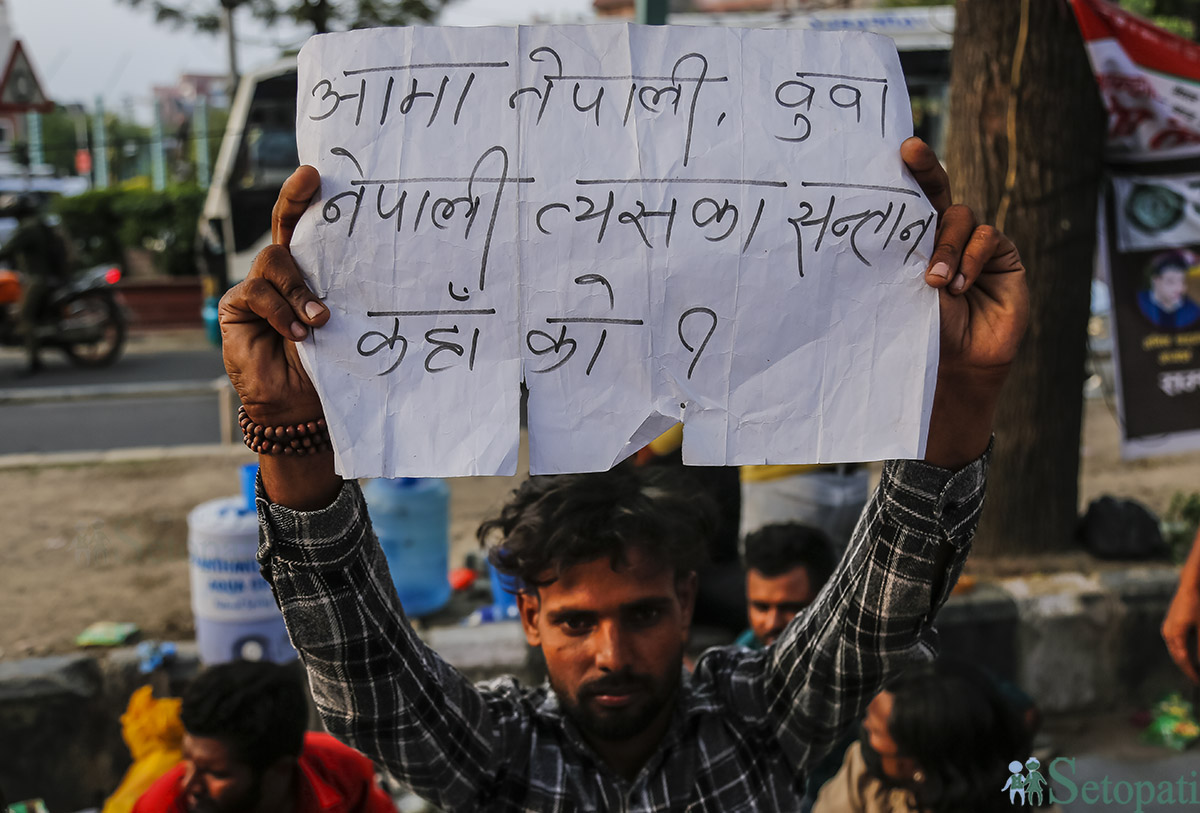 आमा नेपाली, वुवा
नेपाली त्यसका सन्तान
कहाँ का ?
Setopati